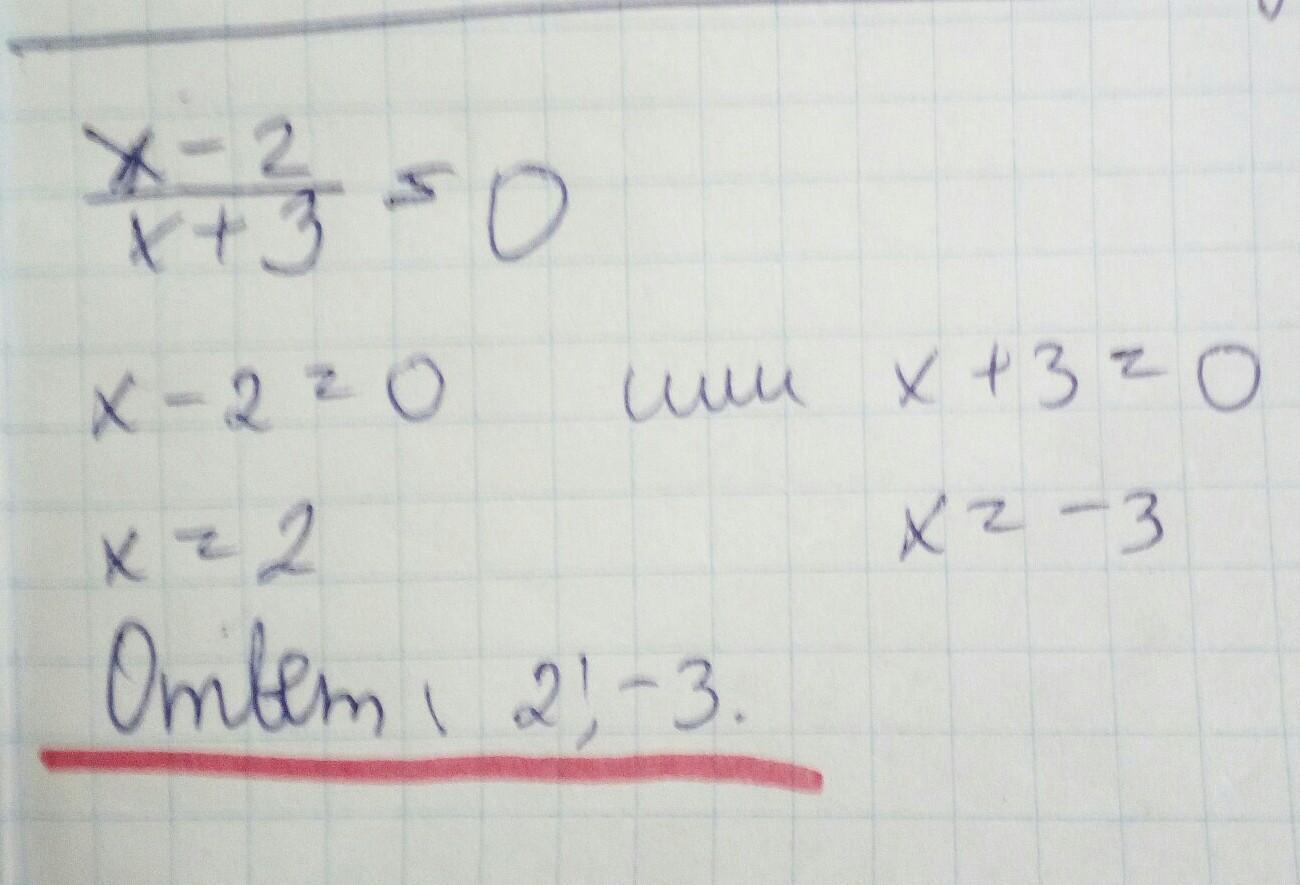 x - 2
x + 3 = 0
x - 2 = 0 или x + 3 = 0
x = 2 x = -3
Ответ: 2; -3.